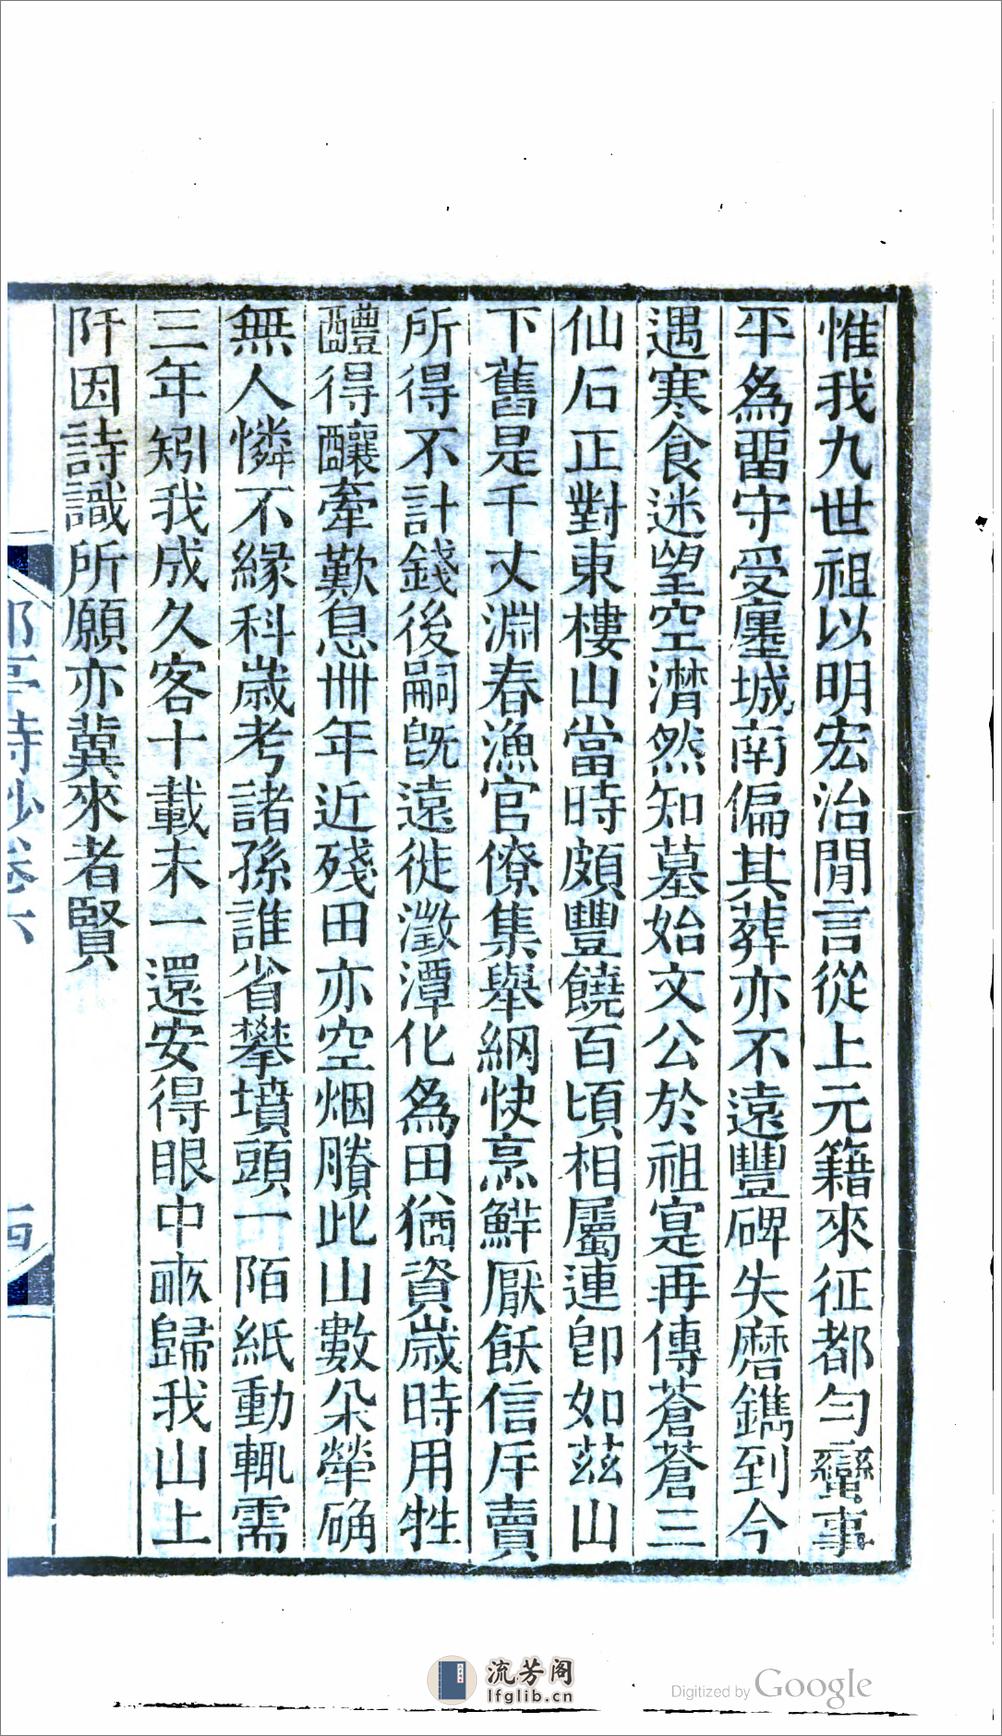 惟我九世祖以明宏治閒言從上元籍來征都勻蠻事
平為畱守受廛城南偏其葬亦不遠豐碑失磨鐫到今
遇寒食迷望空潸然知墓始文公於祖寔再傳蒼蒼三
仙石正對東樓山當時頗豐饒百頃相屬連卽如茲山
下舊是千丈淵春漁官僚集舉網快烹鮮厭飫信斥賣
所得不計錢後嗣旣遠徙澂潭化為田猶資歲時用牲
醴得釀牽歎息卌年近殘田亦空烟賸此山數朵犖确
無人憐不緣科歲考諸孫誰省攀墳頭一陌紙動輒需
三年矧我成久客十載未一還安得眼中畝歸我山上
阡因詩識所願亦冀來者賢
邵亭詩鈔卷六
西
流芳阁
lfglib.cn
Digitized by Google